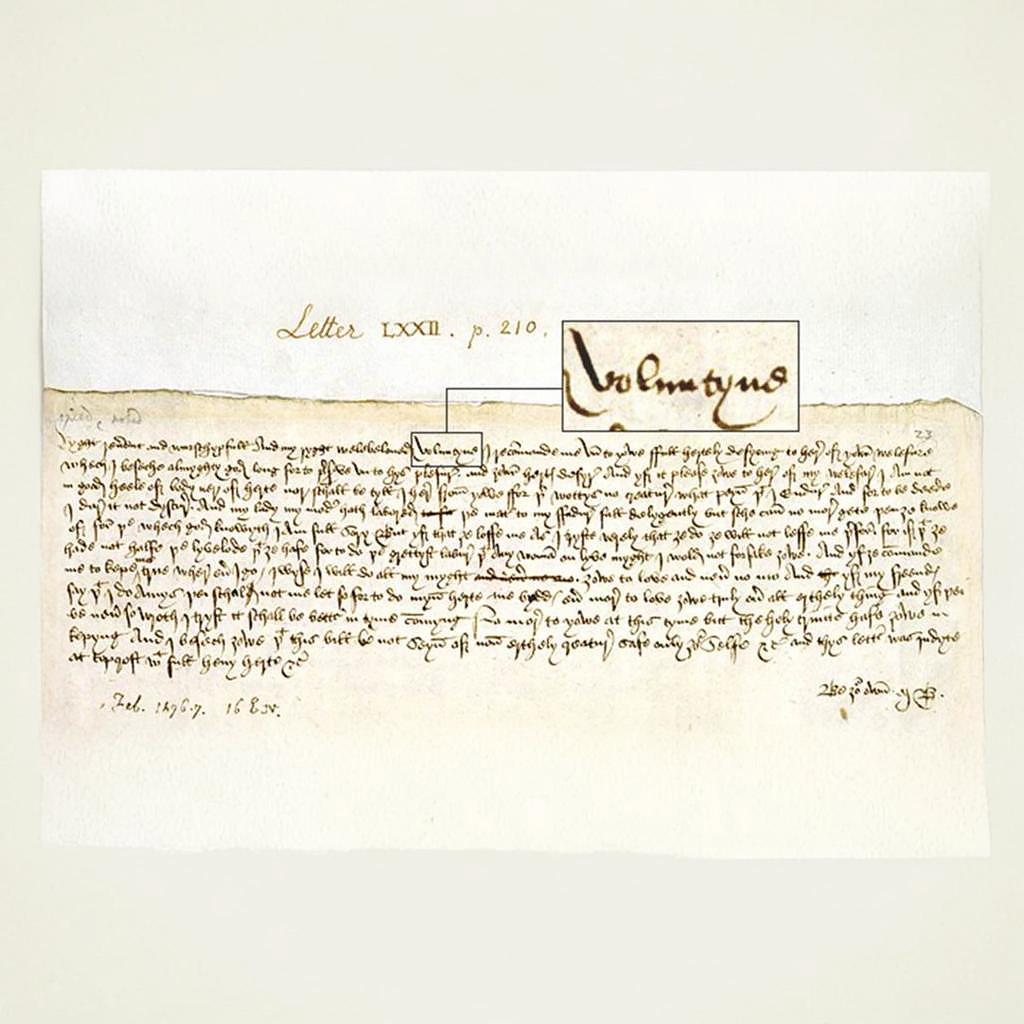 Letter LXXII. p. 210.
Voluntyne
23
Ryght reuerent and wurschypfull And my ryght welebeloued Voluntyne I recomande me vn to yowe full hertely desyring to here of yowr welefare
whech I beseche almyghty god long for to preserve vn to hys plesure and ȝowr hertys desyre And yf it please ȝowe to here of my welefare I am not
in good heele of body ner of herte nor schall be tyll I here from yowe for þer wottys no creature what peyn þt I endure And for to be deede
I dur it not dyscure And my lady my moder hath labored þe mater to my fadure full delygently but sche can no more gete þen ȝe knowe
of for þe whech god knowyth I am full sory But yf that ȝe loffe me As I tryste verely that ȝe do ȝe will not leffe me þerfor for if þt ȝe
hade not halfe þe lyvelode þt ȝe hafe for to do þe grettyst labure þt Any woman on lyve myght I wold not forsake ȝowe And yf ȝe comande
me to kepe me true wher euer I go I wyse I will do all my myght ȝowe to love and neuer no mo And yf my freendys
say þt I do Amys þei schall not me let so for to do myn herte me bydds euer more to love ȝowe truly ouer all erthely thing and yf þei
be neuer so wroth I tryst it schall be better in tyme comyng No more to yowe at this tyme but the holy trinite hafe ȝowe in
kepyng And I besech ȝowe þt this bill be not seyn of non erthely creature safe only ȝowr selfe &c and thys letter was indyte
at topcroft wt full heuy herte &c
Be ȝowr own M B.
Feb. 1476-7. 16 E. iv.